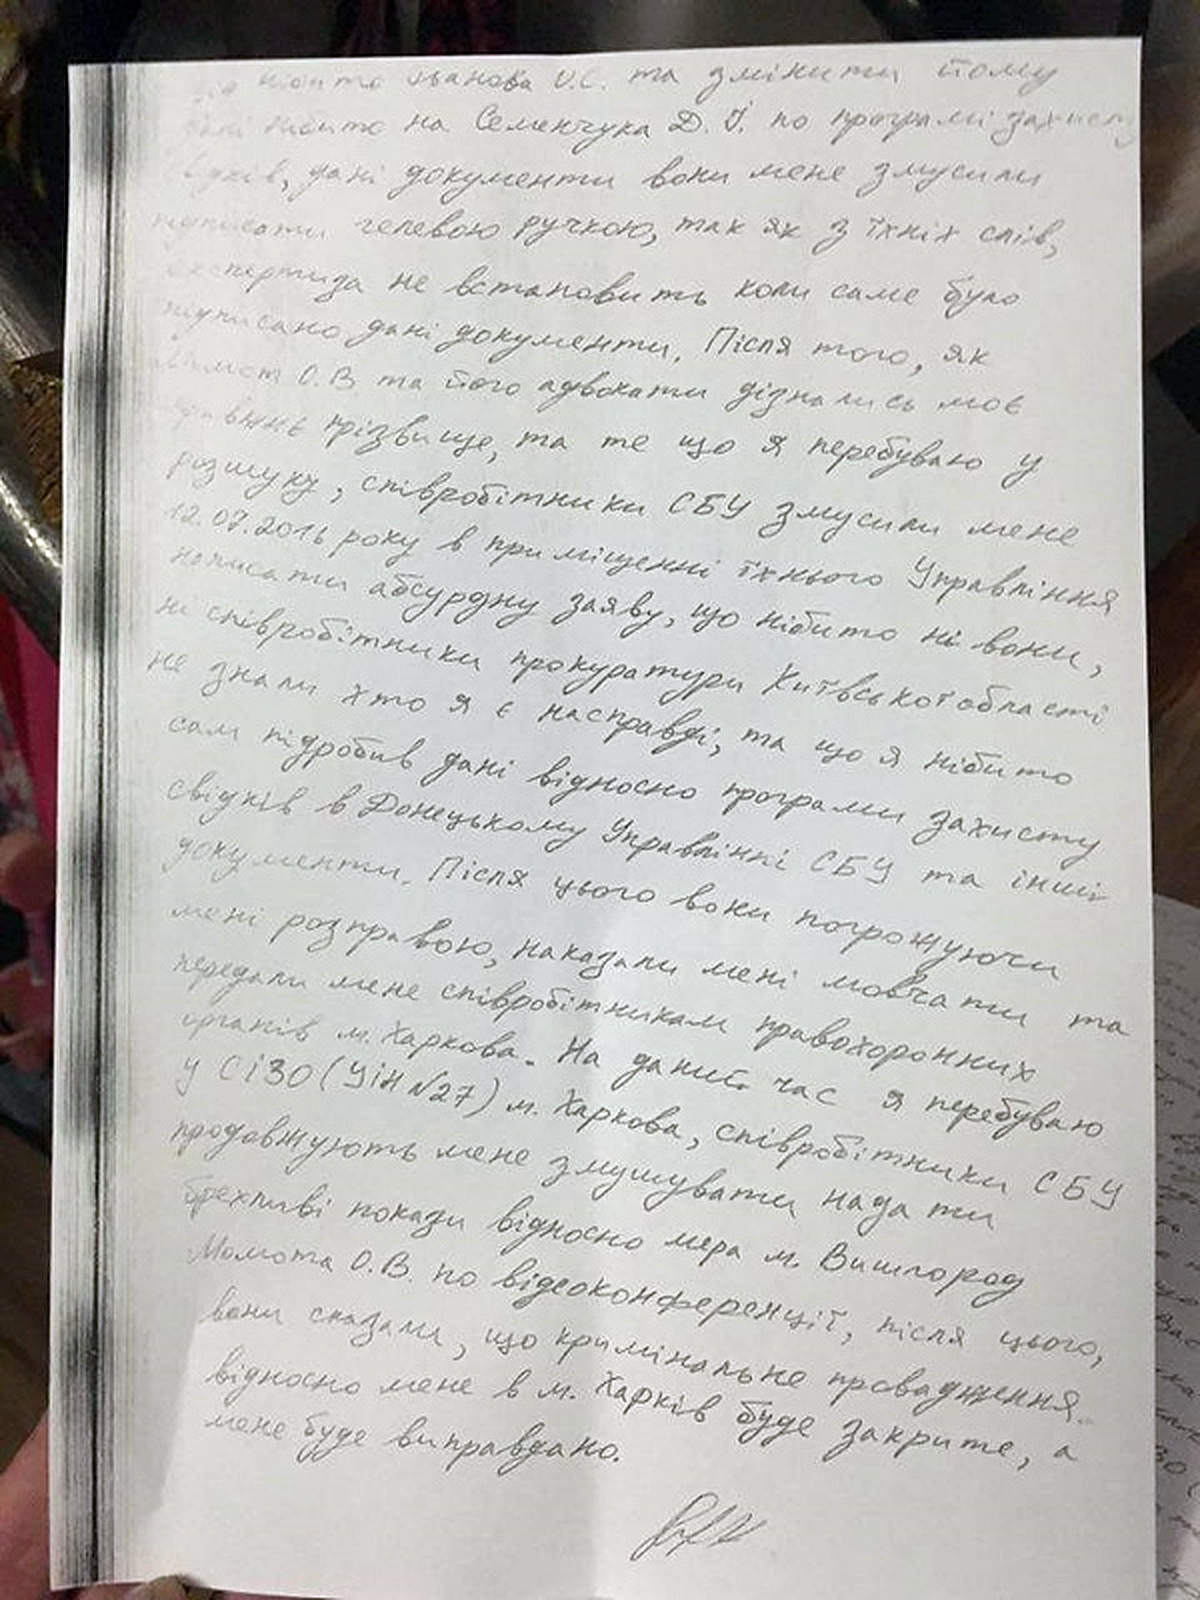 нібито Іванова О.С. та змінити йому
дані нібито на Семенчука Д.І. по програмі захисту
свідків, дані документи вони мене змусили
підписати гелевою ручкою, так як з їхніх слів,
експертиза не встановить коли саме було
підписано дані документи. Після того, як
Момот О.В. та його адвокати дізнались моє
справжнє прізвище, та те що я перебуваю у
розшуку, співробітники СБУ змусили мене
12.07.2016 року в приміщенні їхнього Управління
написати абсурдну заяву, що нібито ні вони,
ні співробітники прокуратури Київської області
не знали хто я є насправді, та що я нібито
сам підробив дані відносно програми захисту
свідків в Донецькому Управлінні СБУ та інші
документи. Після цього вони погрожуючи
мені розправою, наказали мені мовчати та
передали мене співробітникам правохоронних
органів м. Харкова. На даний час я перебуваю
у СІЗО (УІН №27) м. Харкова, співробітники СБУ
продовжують мене змушувати надати
брехливі покази відносно мера м. Вишгород
Момота О.В. по відеоконференції, після цього,
вони сказали, що кримінальне провадження
відносно мене в м. Харків буде закрите, а
мене буде виправдано.